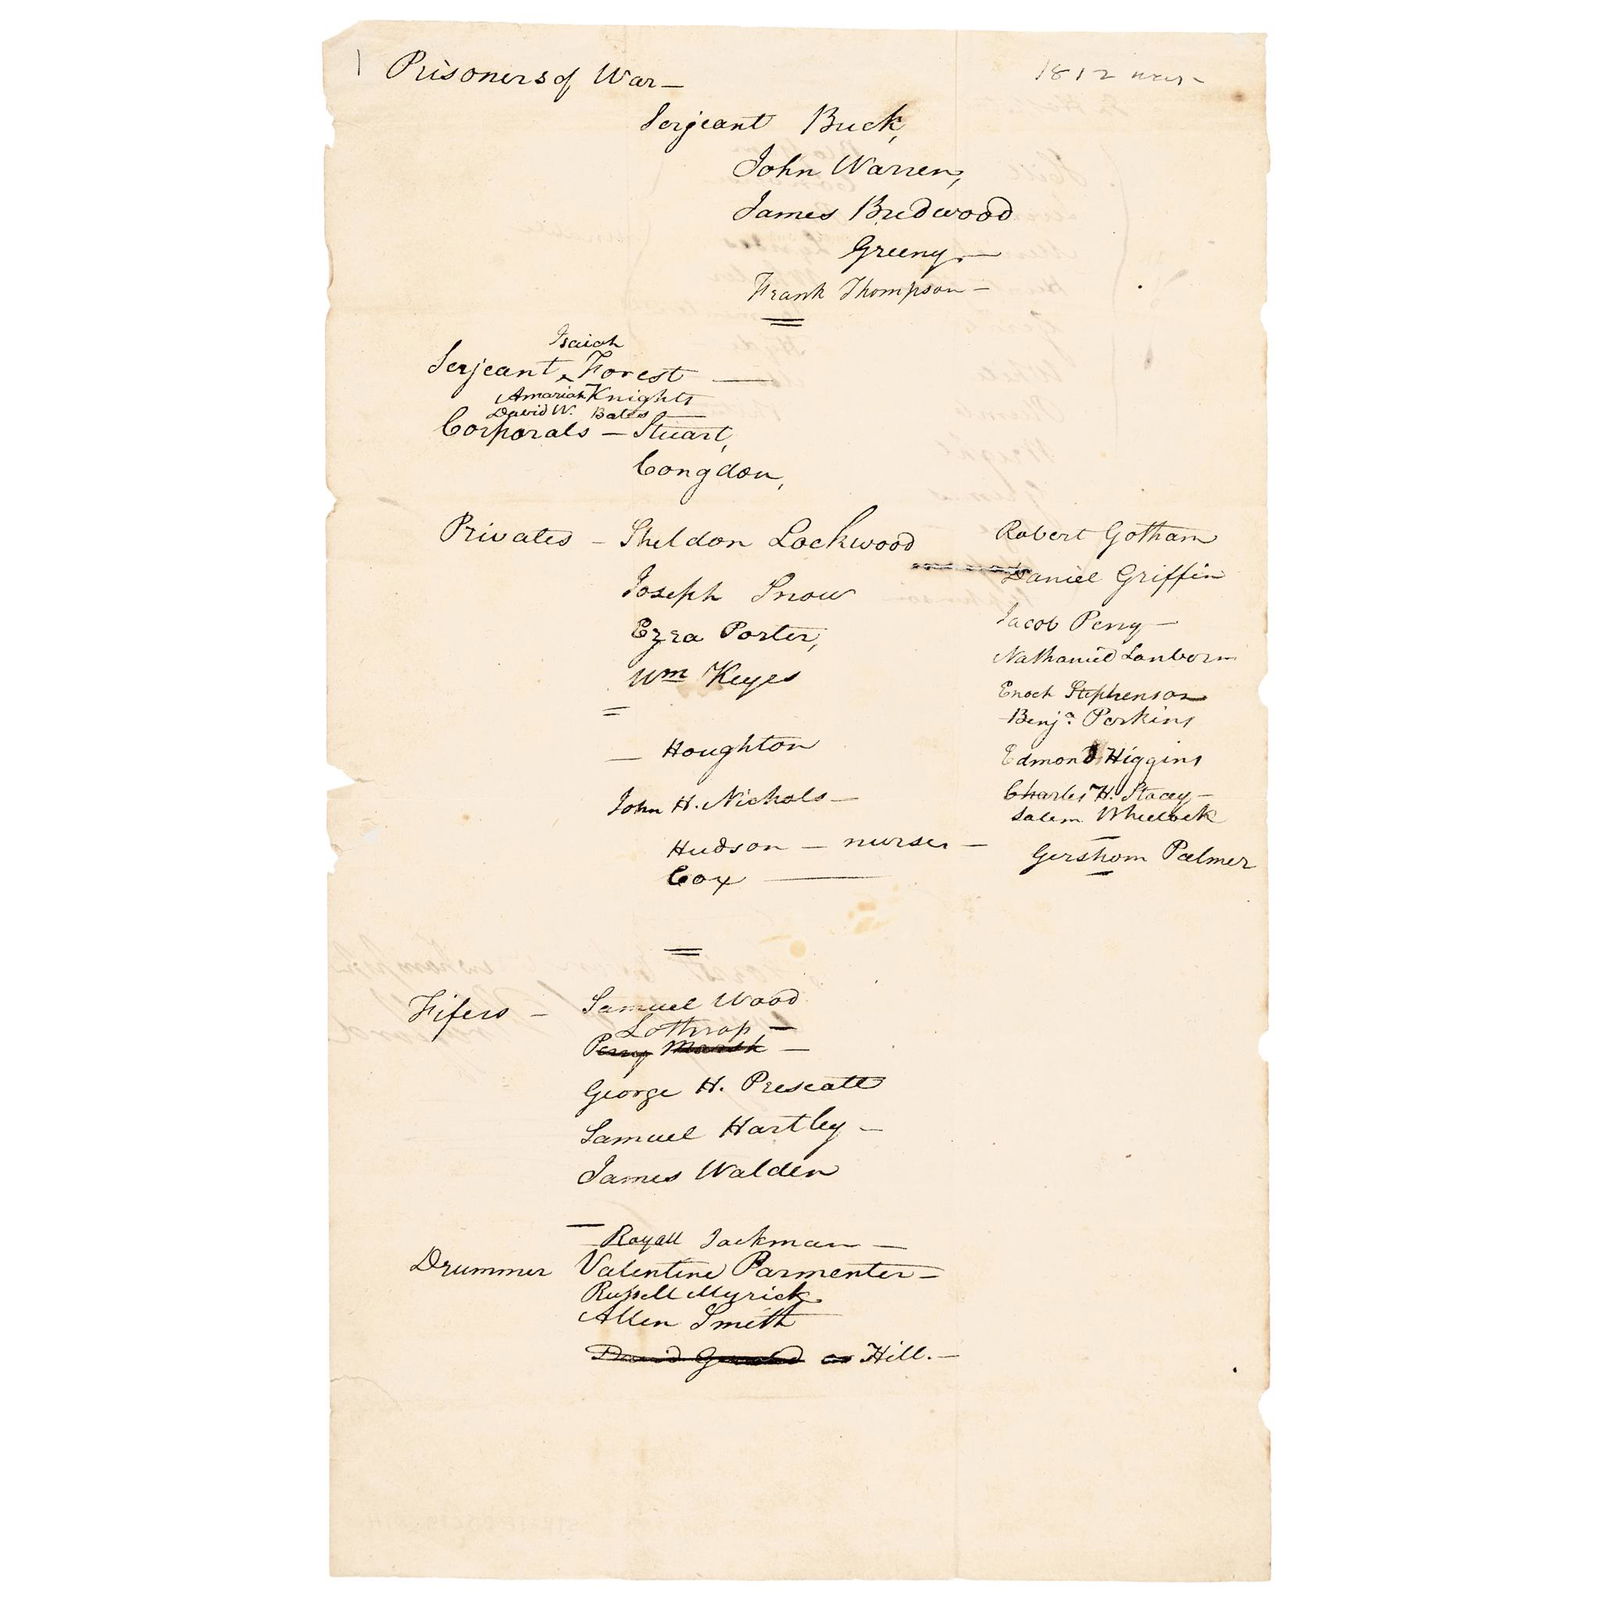 Prisoners of War —
1812 war —
Serjeant Buck,
John Warren,
James Birdwood
Greeny. —
Frank Thompson —
Isaiah
Serjeant ‸ Forest —
Amariah Knights
David W. Bates —
Corporals — Stuart,
Congdon,
Privates — Sheldon Lockwood
Joseph Snow
Ezra Porter,
Wm Keyes
— Houghton
John H. Nichols —
Hudson — nurse —
Cox —
Robert Gotham
Daniel Griffin
Jacob Perry —
Nathaniel Lanborn
Enoch Stephenson
Benja. Perkins
Edmond Higgins
Charles H. Stacey —
Salem Wheelock
Gershom Palmer
Fifers — Samuel Wood
Lothrop —
Perry Marsh —
George H. Prescatt
Samuel Hartley —
James Walden
— Royall Jackman —
Drummer Valentine Parmenter —
Russell Myrick
Allen Smith
David or Hill. —